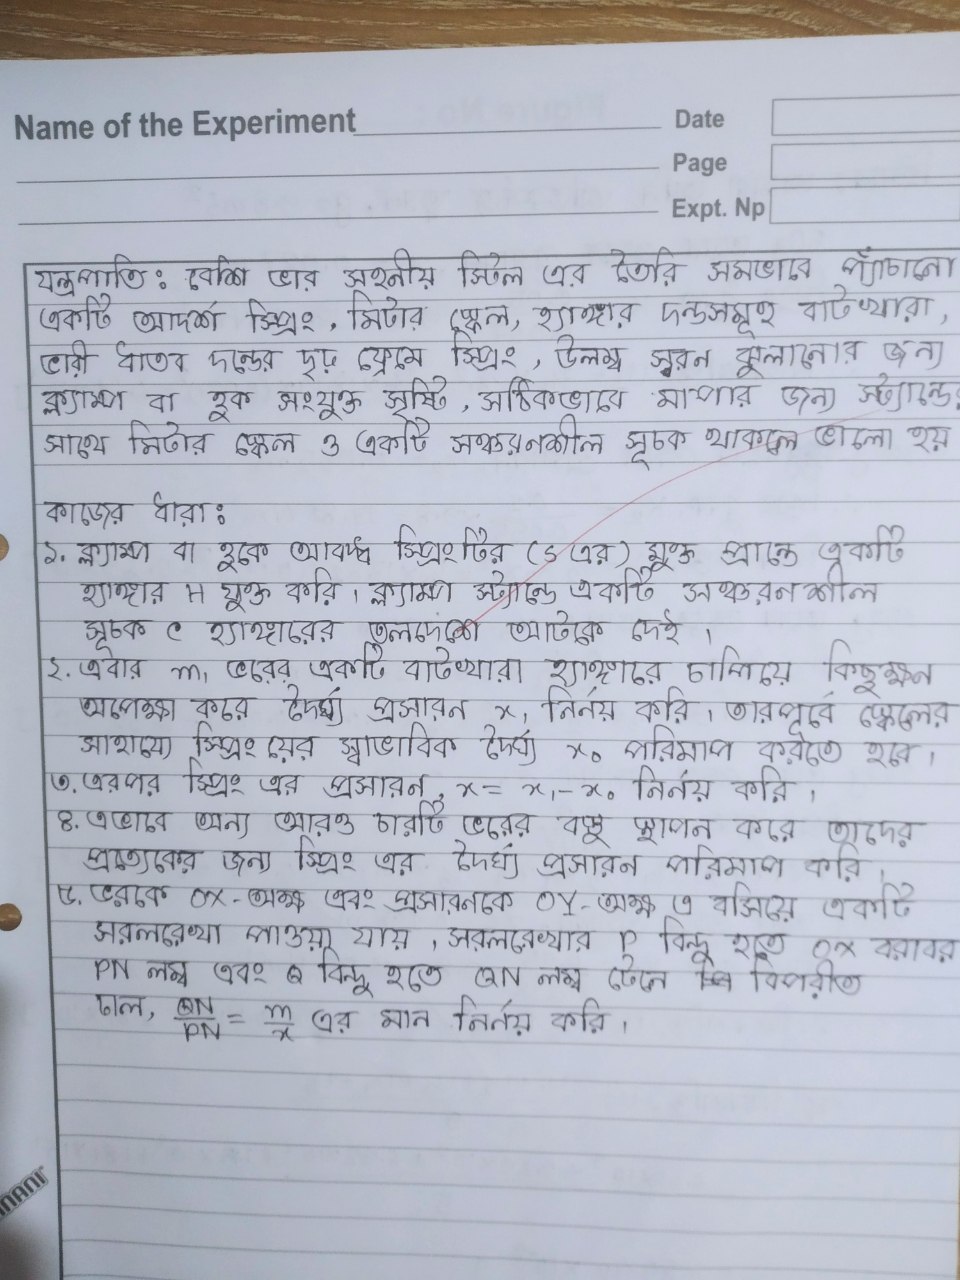 Name of the Experiment
Date
Page
Expt. Np
যন্ত্রপাতি: বেশি ভার সহনীয় স্টিল এর তৈরি সমভাবে প্যাঁচানো
একটি আদর্শ স্প্রিং, মিটার স্কেল, হ্যাঙ্গার দন্ডসমূহ বাটখারা,
ভারী ধাতব দন্ডের দৃঢ় ফ্রেমে স্প্রিং, উলম্ব ঝুলানোর জন্য
ক্ল্যাম্প বা হুক সংযুক্ত সৃষ্টি, সঠিকভাবে মাপার জন্য স্ট্যান্ডের
সাথে মিটার স্কেল ও একটি সঞ্চরনশীল সূচক থাকলে ভালো হয়
কাজের ধারা:
১. ক্ল্যাম্প বা হুকে আবদ্ধ স্প্রিংটির (S এর) মুক্ত প্রান্তে একটি
হ্যাঙ্গার H যুক্ত করি। ক্ল্যাম্প স্ট্যান্ডে একটি সঞ্চরনশীল
সূচক C হ্যাঙ্গারের তলদেশে আটকে দেই।
২. এবার m₁ ভরের একটি বাটখারা হ্যাঙ্গারে চাপিয়ে কিছুক্ষন
অপেক্ষা করে দৈর্ঘ্য প্রসারন x₁ নির্নয় করি। তারপূর্বে স্কেলের
সাহায্যে স্প্রিংয়ের স্বাভাবিক দৈর্ঘ্য x₀ পরিমাপ করতে হবে।
৩. এরপর স্প্রিং এর প্রসারন, x = x₁ - x₀ নির্নয় করি।
৪. এভাবে অন্য আরও চারটি ভরের বস্তু স্থাপন করে তাদের
প্রত্যেকের জন্য স্প্রিং এর দৈর্ঘ্য প্রসারন পরিমাপ করি।
৫. ভরকে OX-অক্ষ এবং প্রসারনকে OY-অক্ষ এ বসিয়ে একটি
সরলরেখা পাওয়া যায়, সরলরেখার P বিন্দু হতে OX বরাবর
PN লম্ব এবং Q বিন্দু হতে QN লম্ব টেনে বিপরীত
ঢাল, QN/PN = m/x এর মান নির্নয় করি।